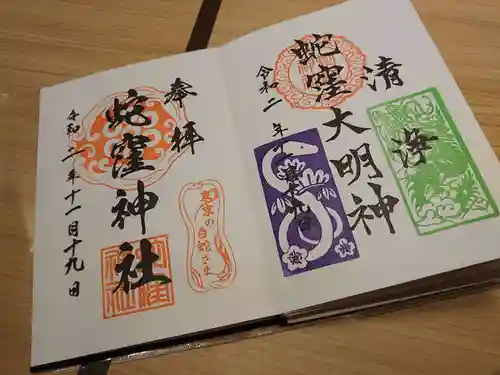 清浄
蛇窪大明神
令和二年十一月十九日
奉拝
蛇窪神社
令和二年十一月十九日
東京の
白蛇さま